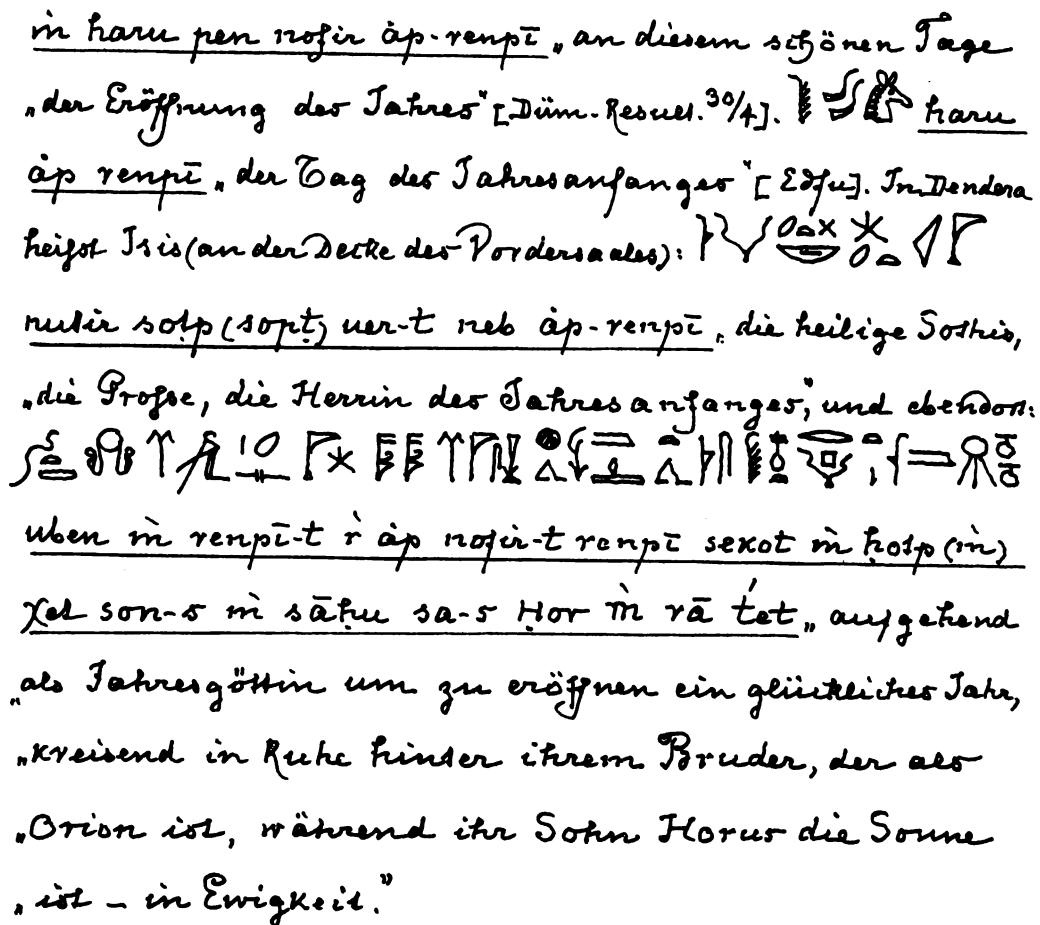 ṁ haru pen nofir ȧp-renpī „an diesem schönen Tage
„der Eröffnung des Jahres“ [Düm. Resuet. 30/4]. haru
ȧp renpī „der Tag des Jahresanfanges“ [Edfu]. In Dendera
heißt Isis (an der Decke des Vordersaales):
nutir sotp (sopṭ) uer-t neb ȧp-renpī „die heilige Sothis,
„die Große, die Herrin des Jahresanfanges“, und ebendort:
uben ṁ renpī-t ṙ ȧp nofir-t renpī sexot ṁ ḥotp (ṁ)
χet son-s ṁ sāḥu sa-s Ḥor ṁ rā t́et „aufgehend
„als Jahresgöttin um zu eröffnen ein glückliches Jahr,
„kreisend in Ruhe hinter ihrem Bruder, der als
„Orion ist, während ihr Sohn Horus die Sonne
„ist – in Ewigkeit.“